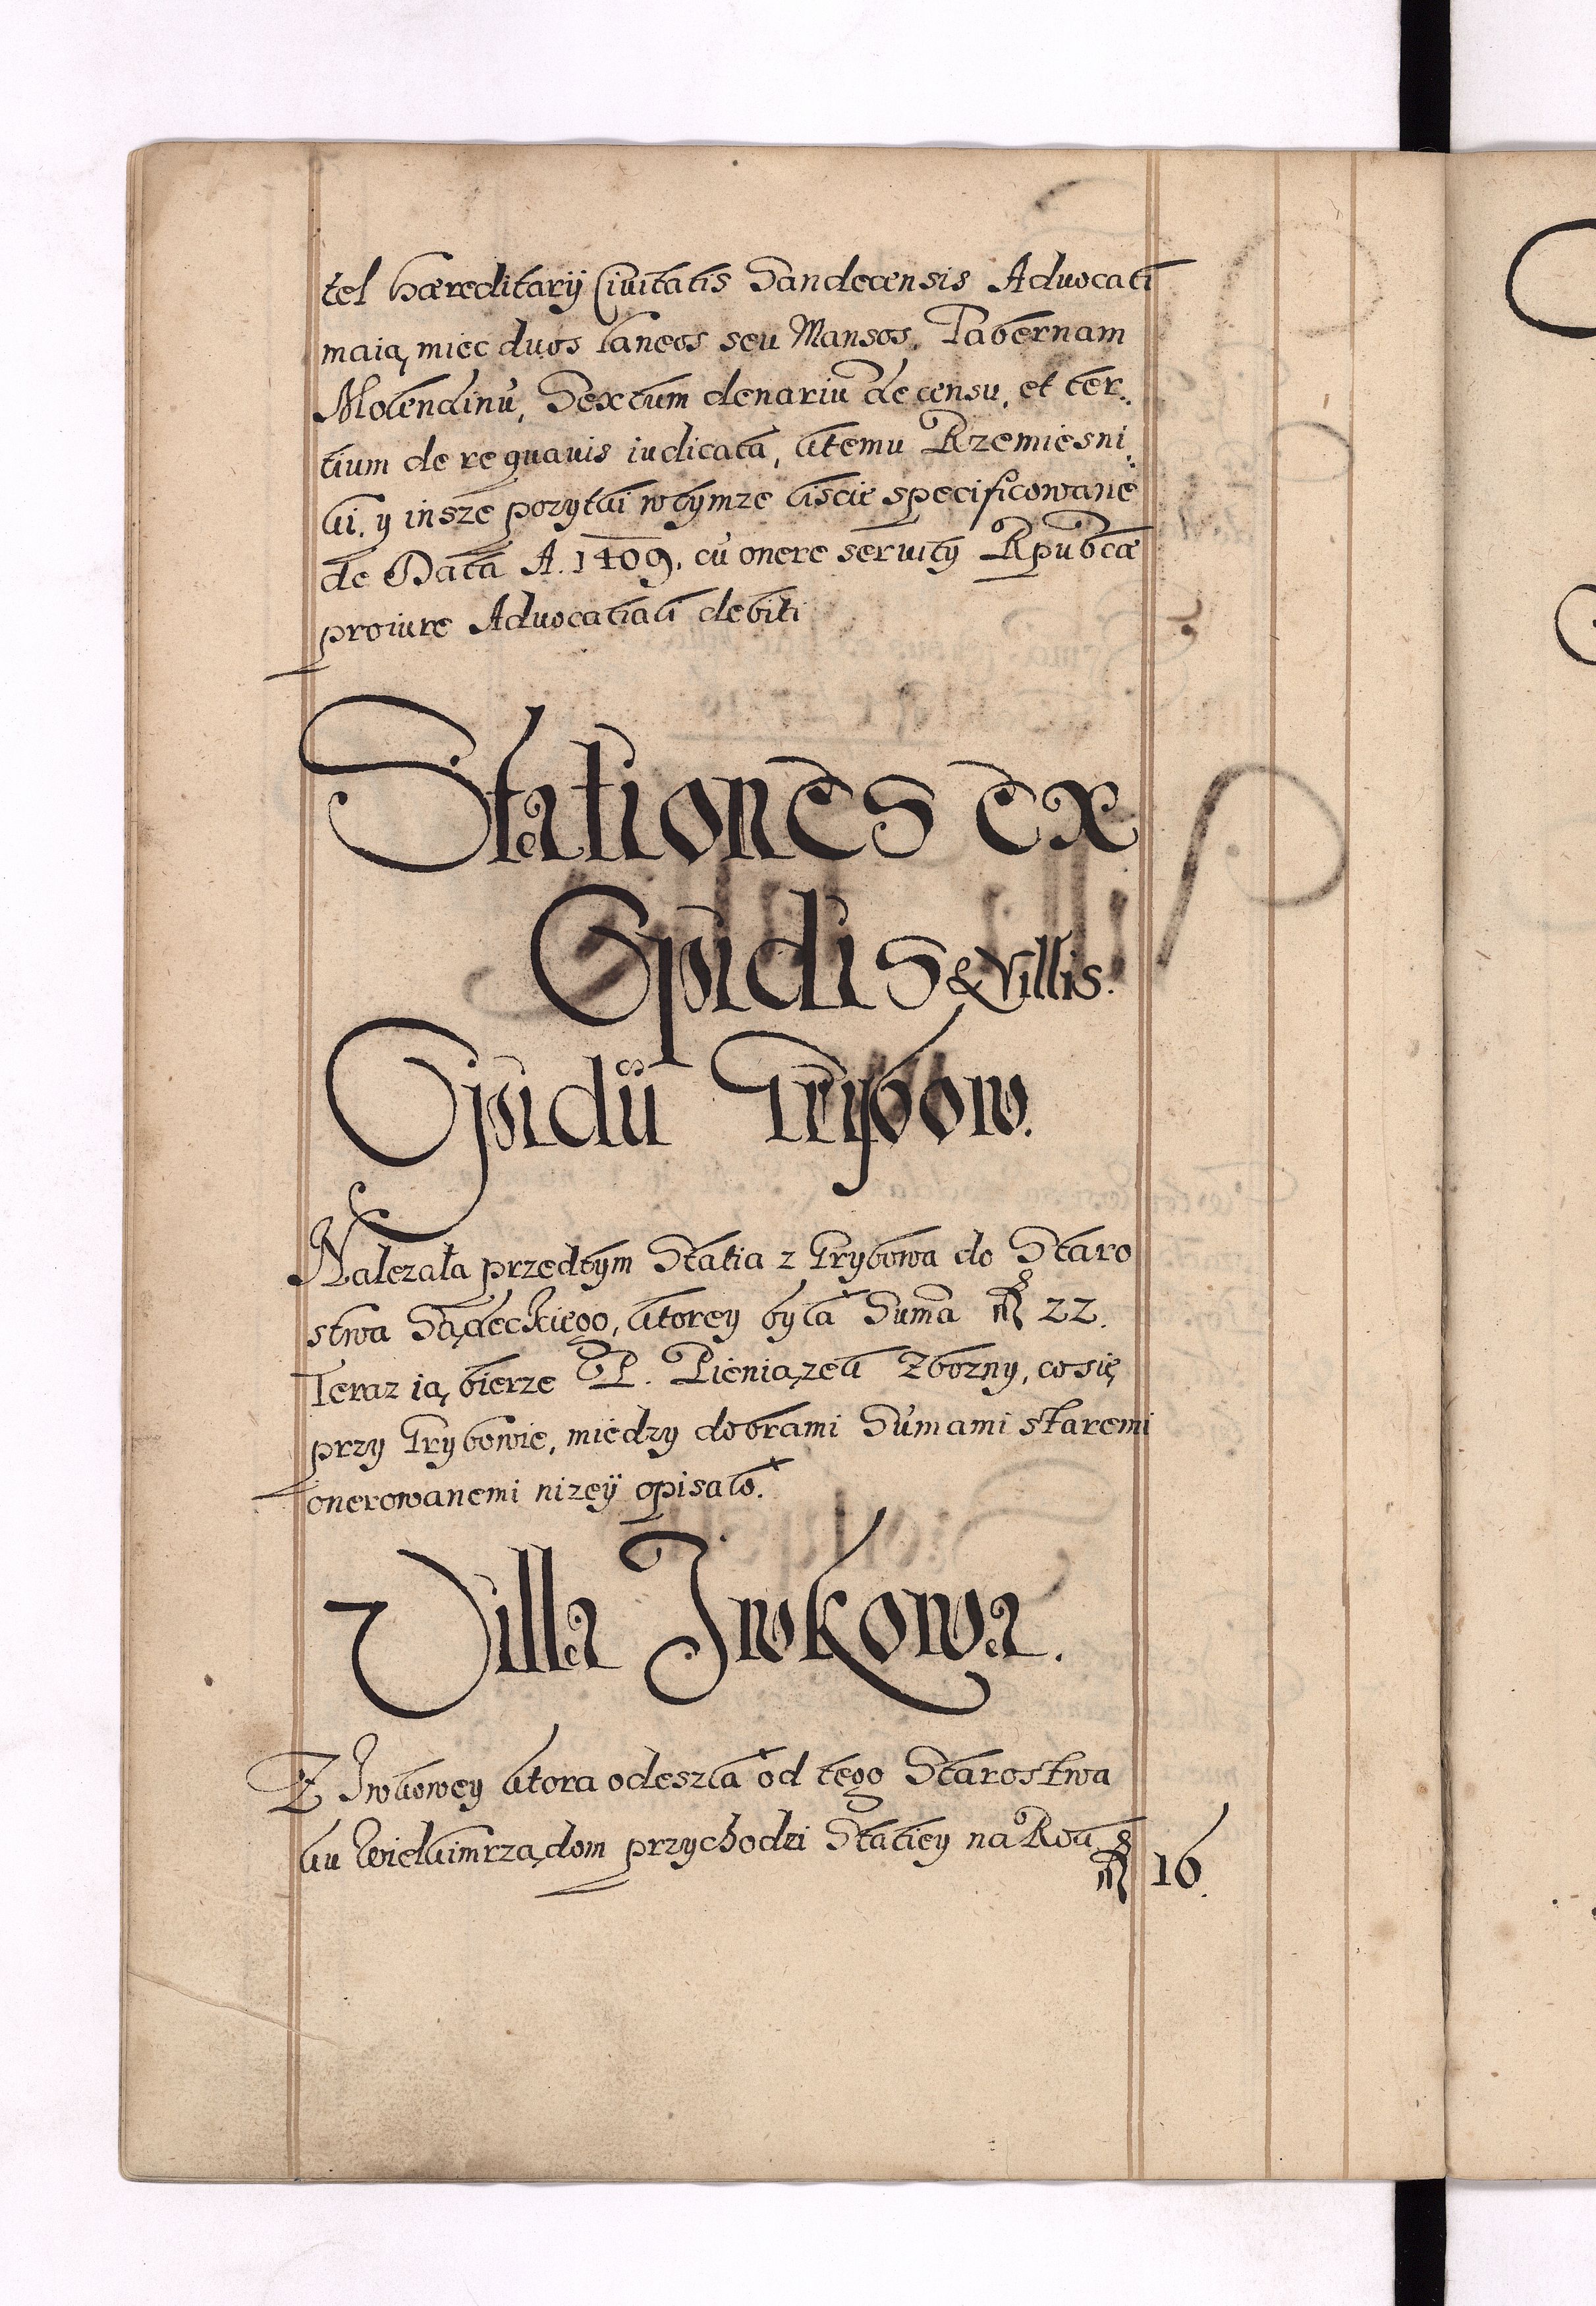 tel hæreditarÿ Civitatis Sandecensis Advocati
maią miec duos laneos seu Mansos, Tabernam
Molendinū, Sextum denariū de censu, et ter-
tium de re quavis iudicata, ktemu Rzemiesni-
ki, y insze pozytki w tymze liscie specificowane
de Data A. 1409. cū onere servitÿ Rpublcæ
pro iure Advocatiali debiti
Stationes ex
Opidis & Villis.
Opidū Grybow.
Nalezała przedtym Statia z Grybowa do Staro
stwa Sądeckiego, ktorey była Suma 22.
Teraz ią bierze P. Pieniązek Zborny, co się
przy Grybowie, miedzy dobrami Sumami staremi
onerowanemi nizeÿ opisało.
Villa Iwkowa.
Z Iwkowey ktora odeszła od tego Starostwa
ku Wielkimrządom przychodzi Statiey na Rok
16.